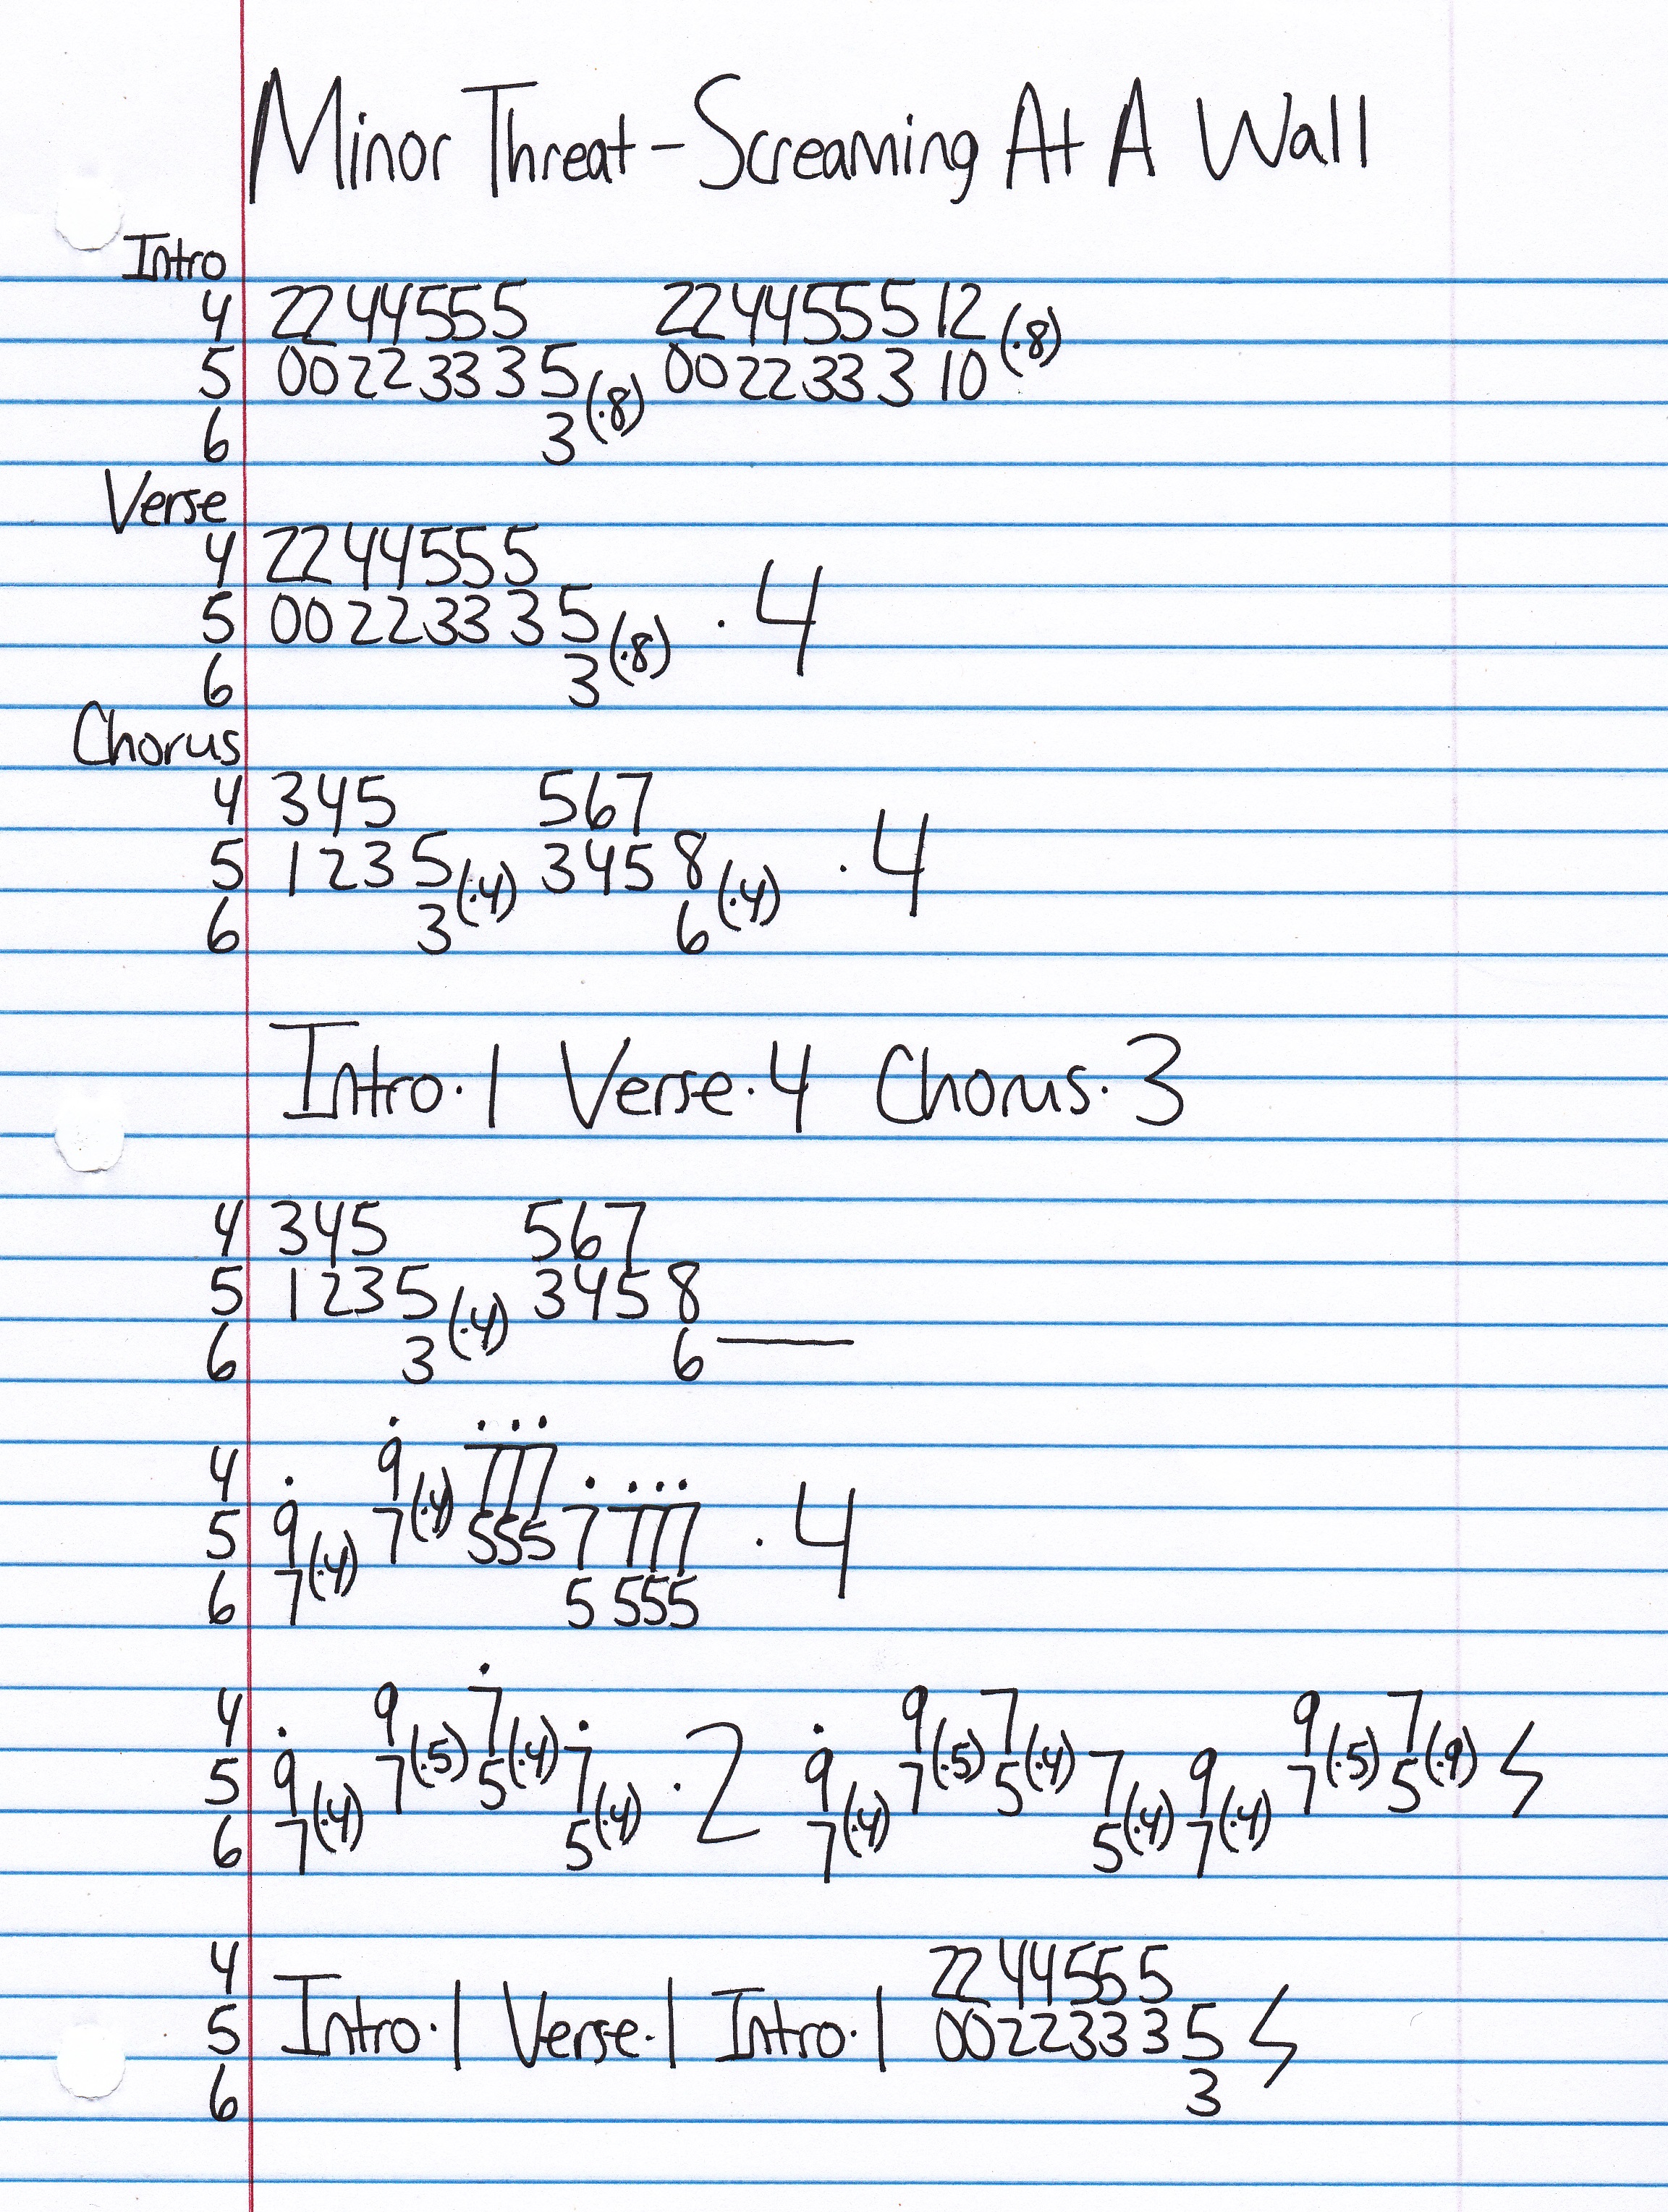 Minor Threat - Screaming At A Wall
Intro
4 22 44 555 22 44 55 5 12
5 00 22 33 3 5 (·8) 00 22 33 3 10 (·8)
6 3
Verse
4 22 44 555
5 00 22 33 3 5 (·8) · 4
6 3
Chorus
4 345 567
5 1 2 3 5 (·4) 345 8 (·4) · 4
6 3 6
Intro · 1 Verse · 4 Chorus · 3
4 345 567
5 1 2 3 5 (·4) 345 8
6 3 6 ——
4 9 777
5 9 7 (·4) 555 7 777 · 4
6 7 (·4) 5 555
4 9 7 9 7 9 7
5 9 7 (·5) 5 (·4) 7 · 2 9 7 (·5) 5 (·4) 7 9 7 (·5) 5 (·9)
6 7 (·4) 5 (·4) 7 (·4) 5 (·4) 7 (·4)
4 22 44 55 5
5 Intro · 1 Verse · 1 Intro · 1 00 22 33 3 5
6 3